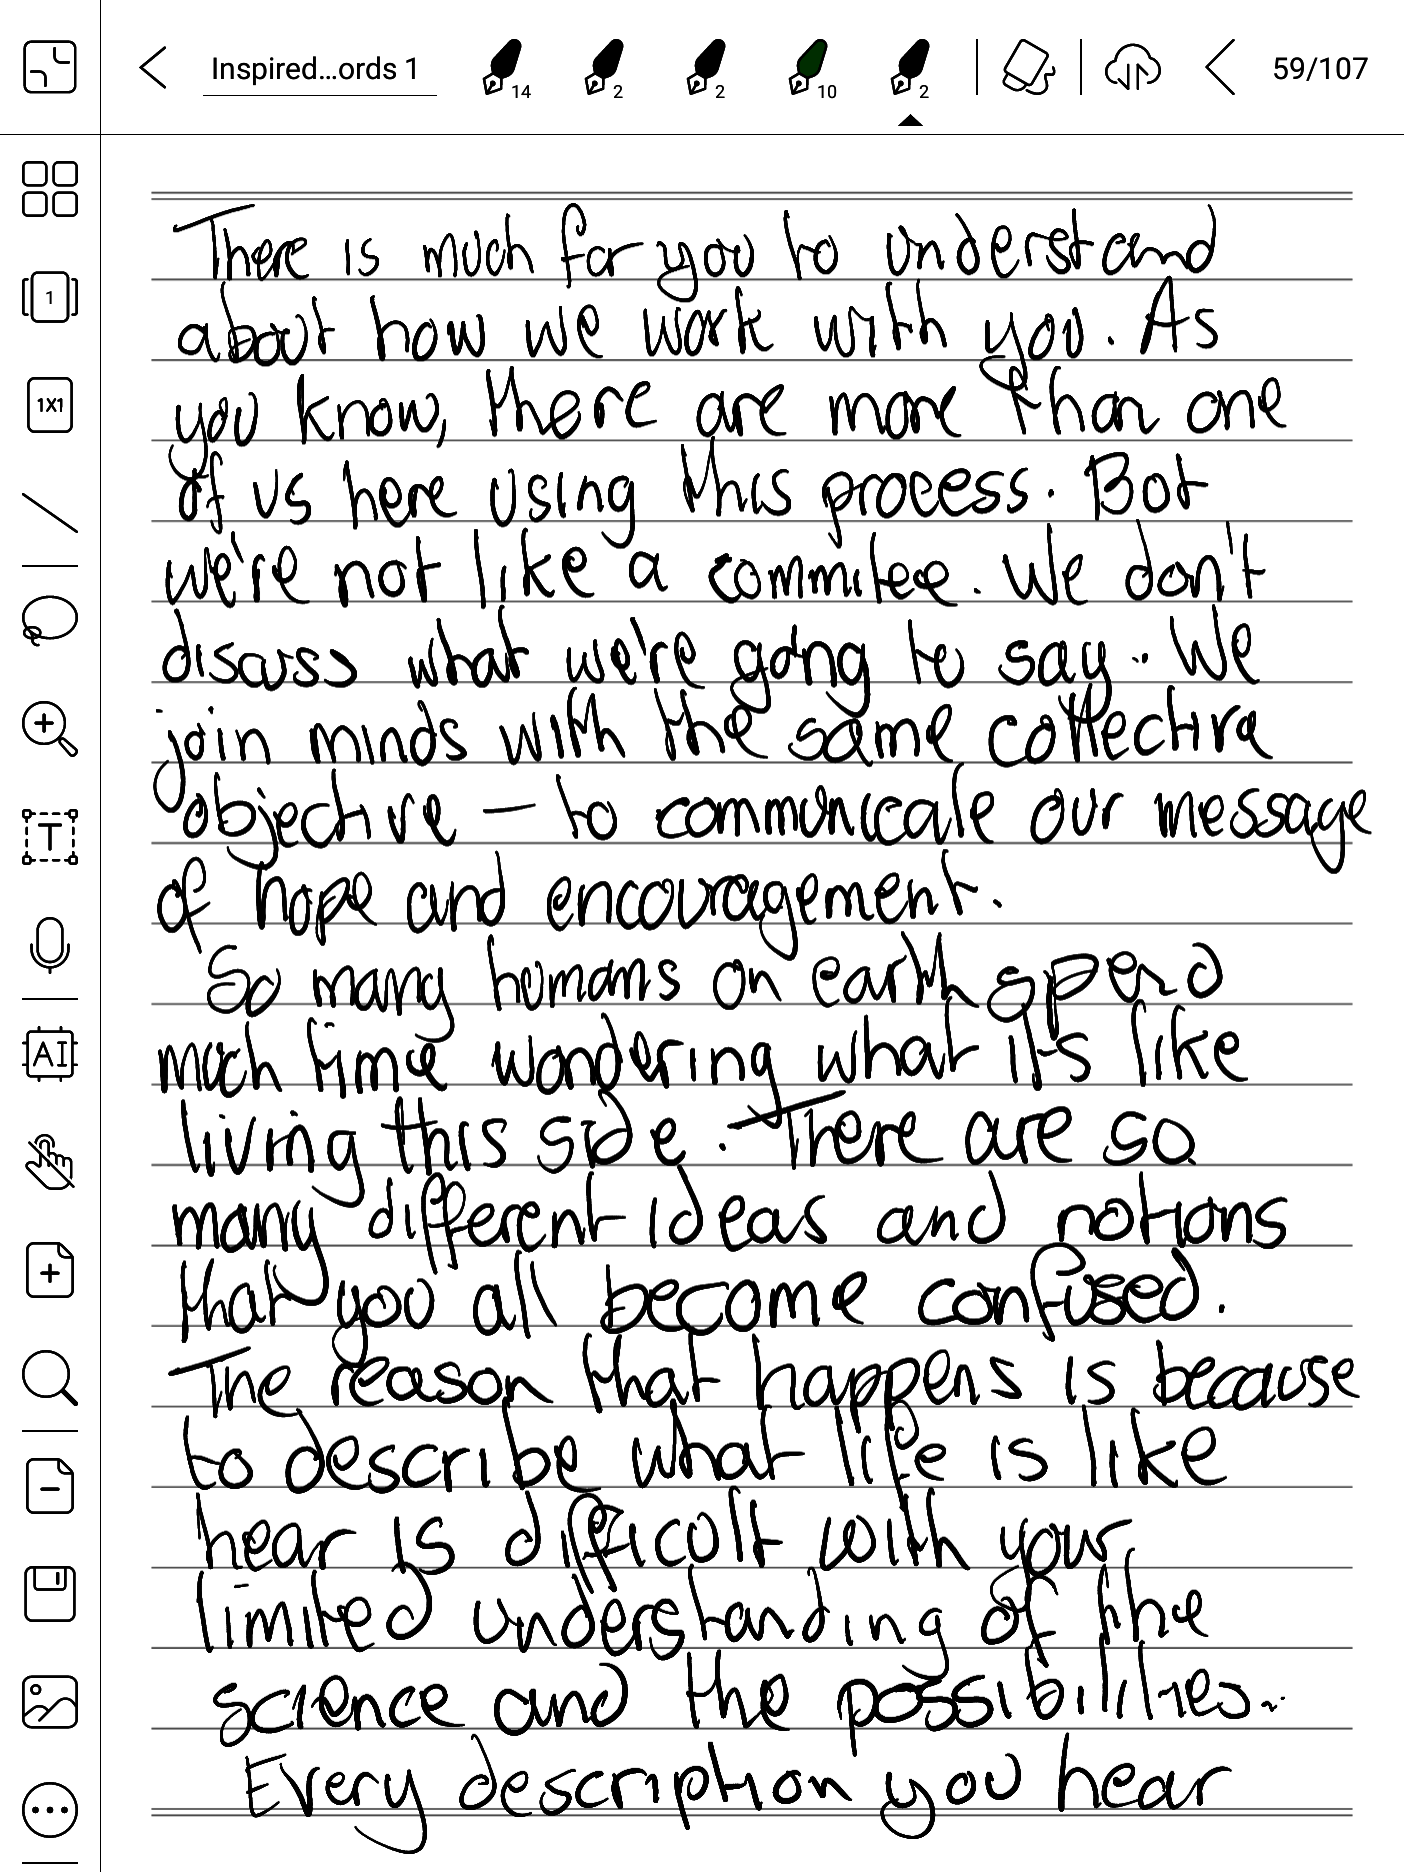 Inspired...ords 1
14
2
2
10
2
59/107
1
1X1
T
AI
There is much for you to understand
about how we work with you. As
you know, there are more than one
of us here using this process. But
we're not like a commitee. We don't
discuss what we're going to say.. We
join minds with the same collective
objective — to communicate our message
of hope and encouragement.
So many humans on earth spend
much time wondering what it's like
living this side. There are so
many different ideas and notions
that you all become confused.
The reason that happens is because
to describe what life is like
hear is difficult with your
limited understanding of the
science and the possibilities..
Every description you hear